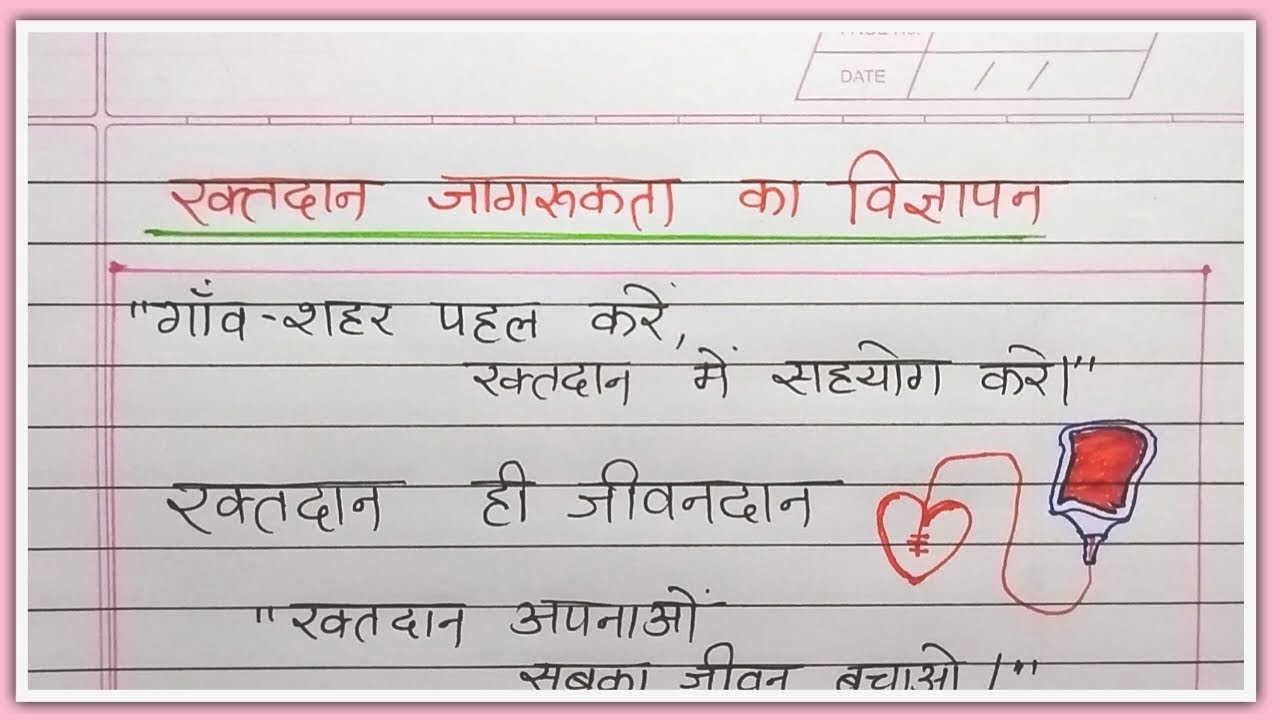 DATE / /
रक्तदान जागरूकता का विज्ञापन
"गाँव-शहर पहल करें,
रक्तदान में सहयोग करे।"
रक्तदान ही जीवनदान
"रक्तदान अपनाओं
सबका जीवन बचाओ।"